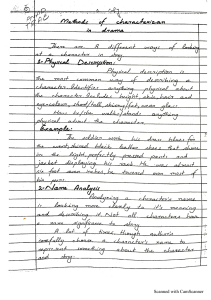 Methods of characterization
in drama
There are 8 different ways of looking
at a character in drama
1:-Physical Description:-
Physical description is
the most common way of describing a
character. Identifies anything physical about
the character. Includes height, skin, hair and
eye colour, short/tall, skinny/fat, wears glass
How he/she walks/stands anything
physical about the character.
Example:-
The soldier wore his
the waist, shined black leather shoes that shone
in the light, perfectly pressed pants and
jacket displaying his rank. He was almost
six foot even makes he towered over most of
his peers
2:-Name Analysis
Analyzing a character's name
is looking more closely to its meaning
and describing it. Not all characters have
a name significance to story.
A lot of times, though authors
carefully choose a character's name to
represent something about the character
and story.
Scanned with CamScanner